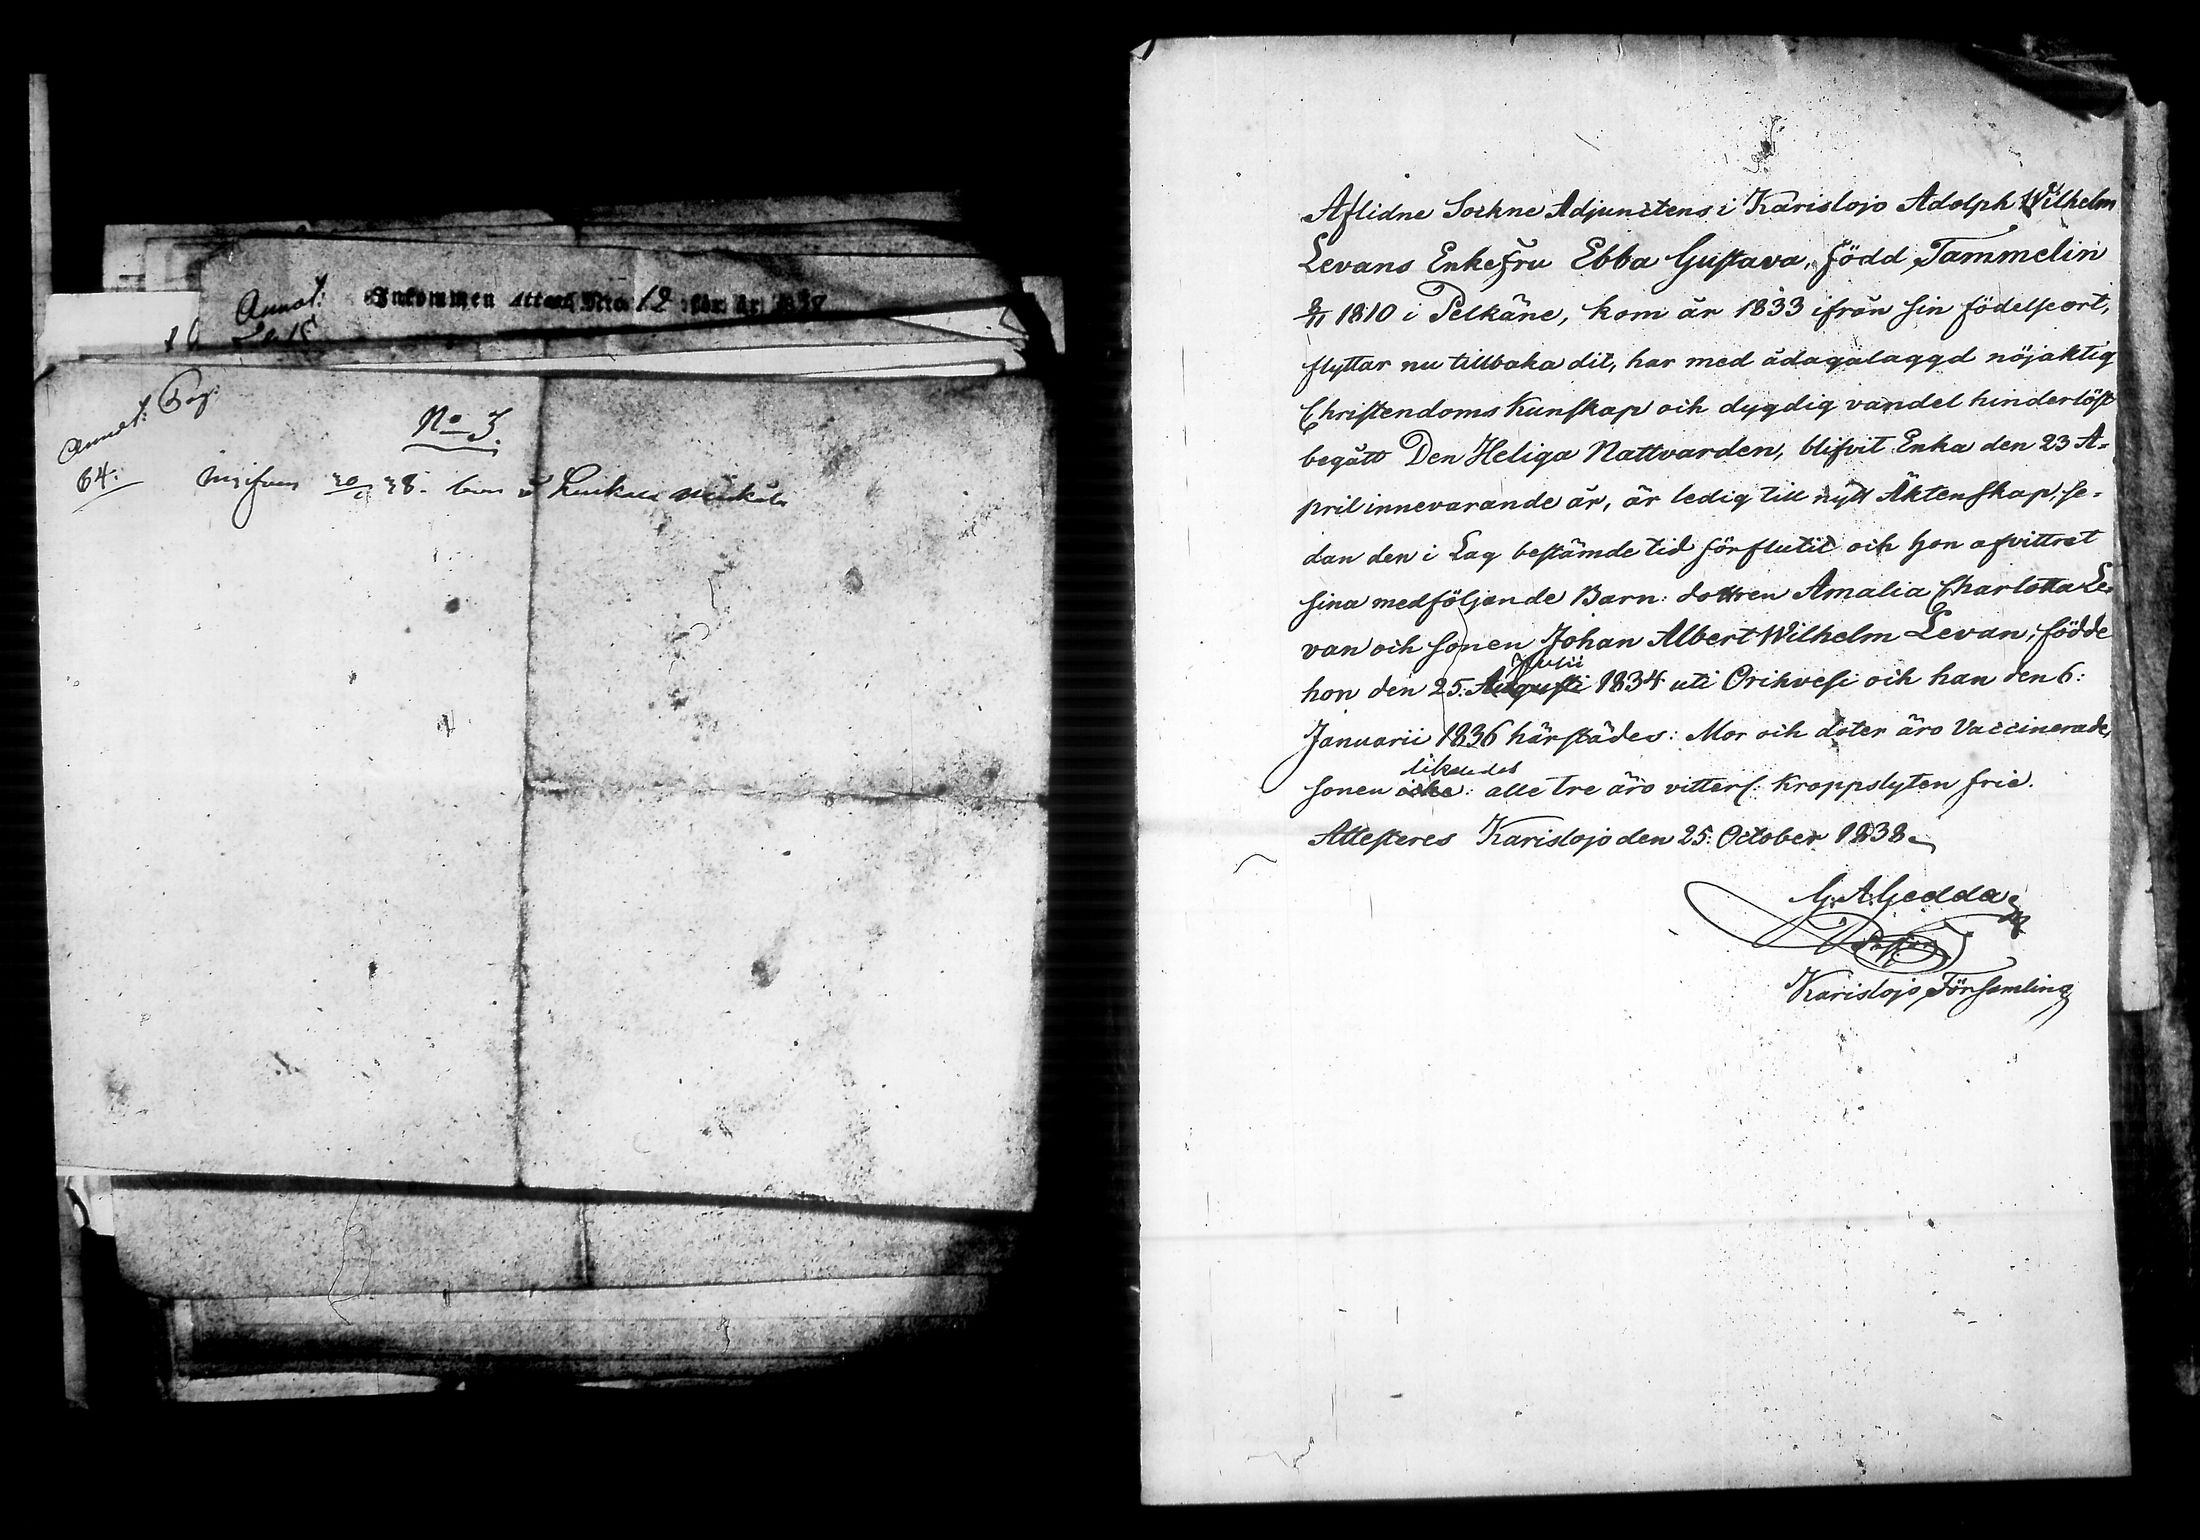 Annot:
Inkommen attest Nro 12 för år 1838
Annot: Pag:
No 3.
64:
Aflidne Sockne Adjunctens i Karislojo Adolph Wilhelm
Levans Enkefru Ebba Gustava, född Tammelin
1810 i Pelkäne, kom år 1833 ifrån sin födelseort,
flyttar nu tillbaka dit, har med ådagalaggd nöjaktig
Christendoms Kunskap och dygdig vandel hinderlöst
begått Den Heliga Nattvarden, blifvit Enka den 23 A=
pril innevarande år, är ledig till nytt Äktenskap, se=
dan den i Lag bestämde tid förflutit och hon afvittrat
sina medföljande Barn: dottren Amalia Charlotta Le=
van och sonen Johan Albert Wilhelm Levan, födde
Julii
hon den 25: Augusti 1834 uti Orihvesi och han den 6:
Januarii 1836 härstädes: Mor och doter äro Vaccinerade,
likaledes
sonen icke: alle tre äro vitterl: kroppslyten frie.
Attesteres Karislojo den 25: October 1838.
G. A. Gedda
Pastor
Karislojo Församling